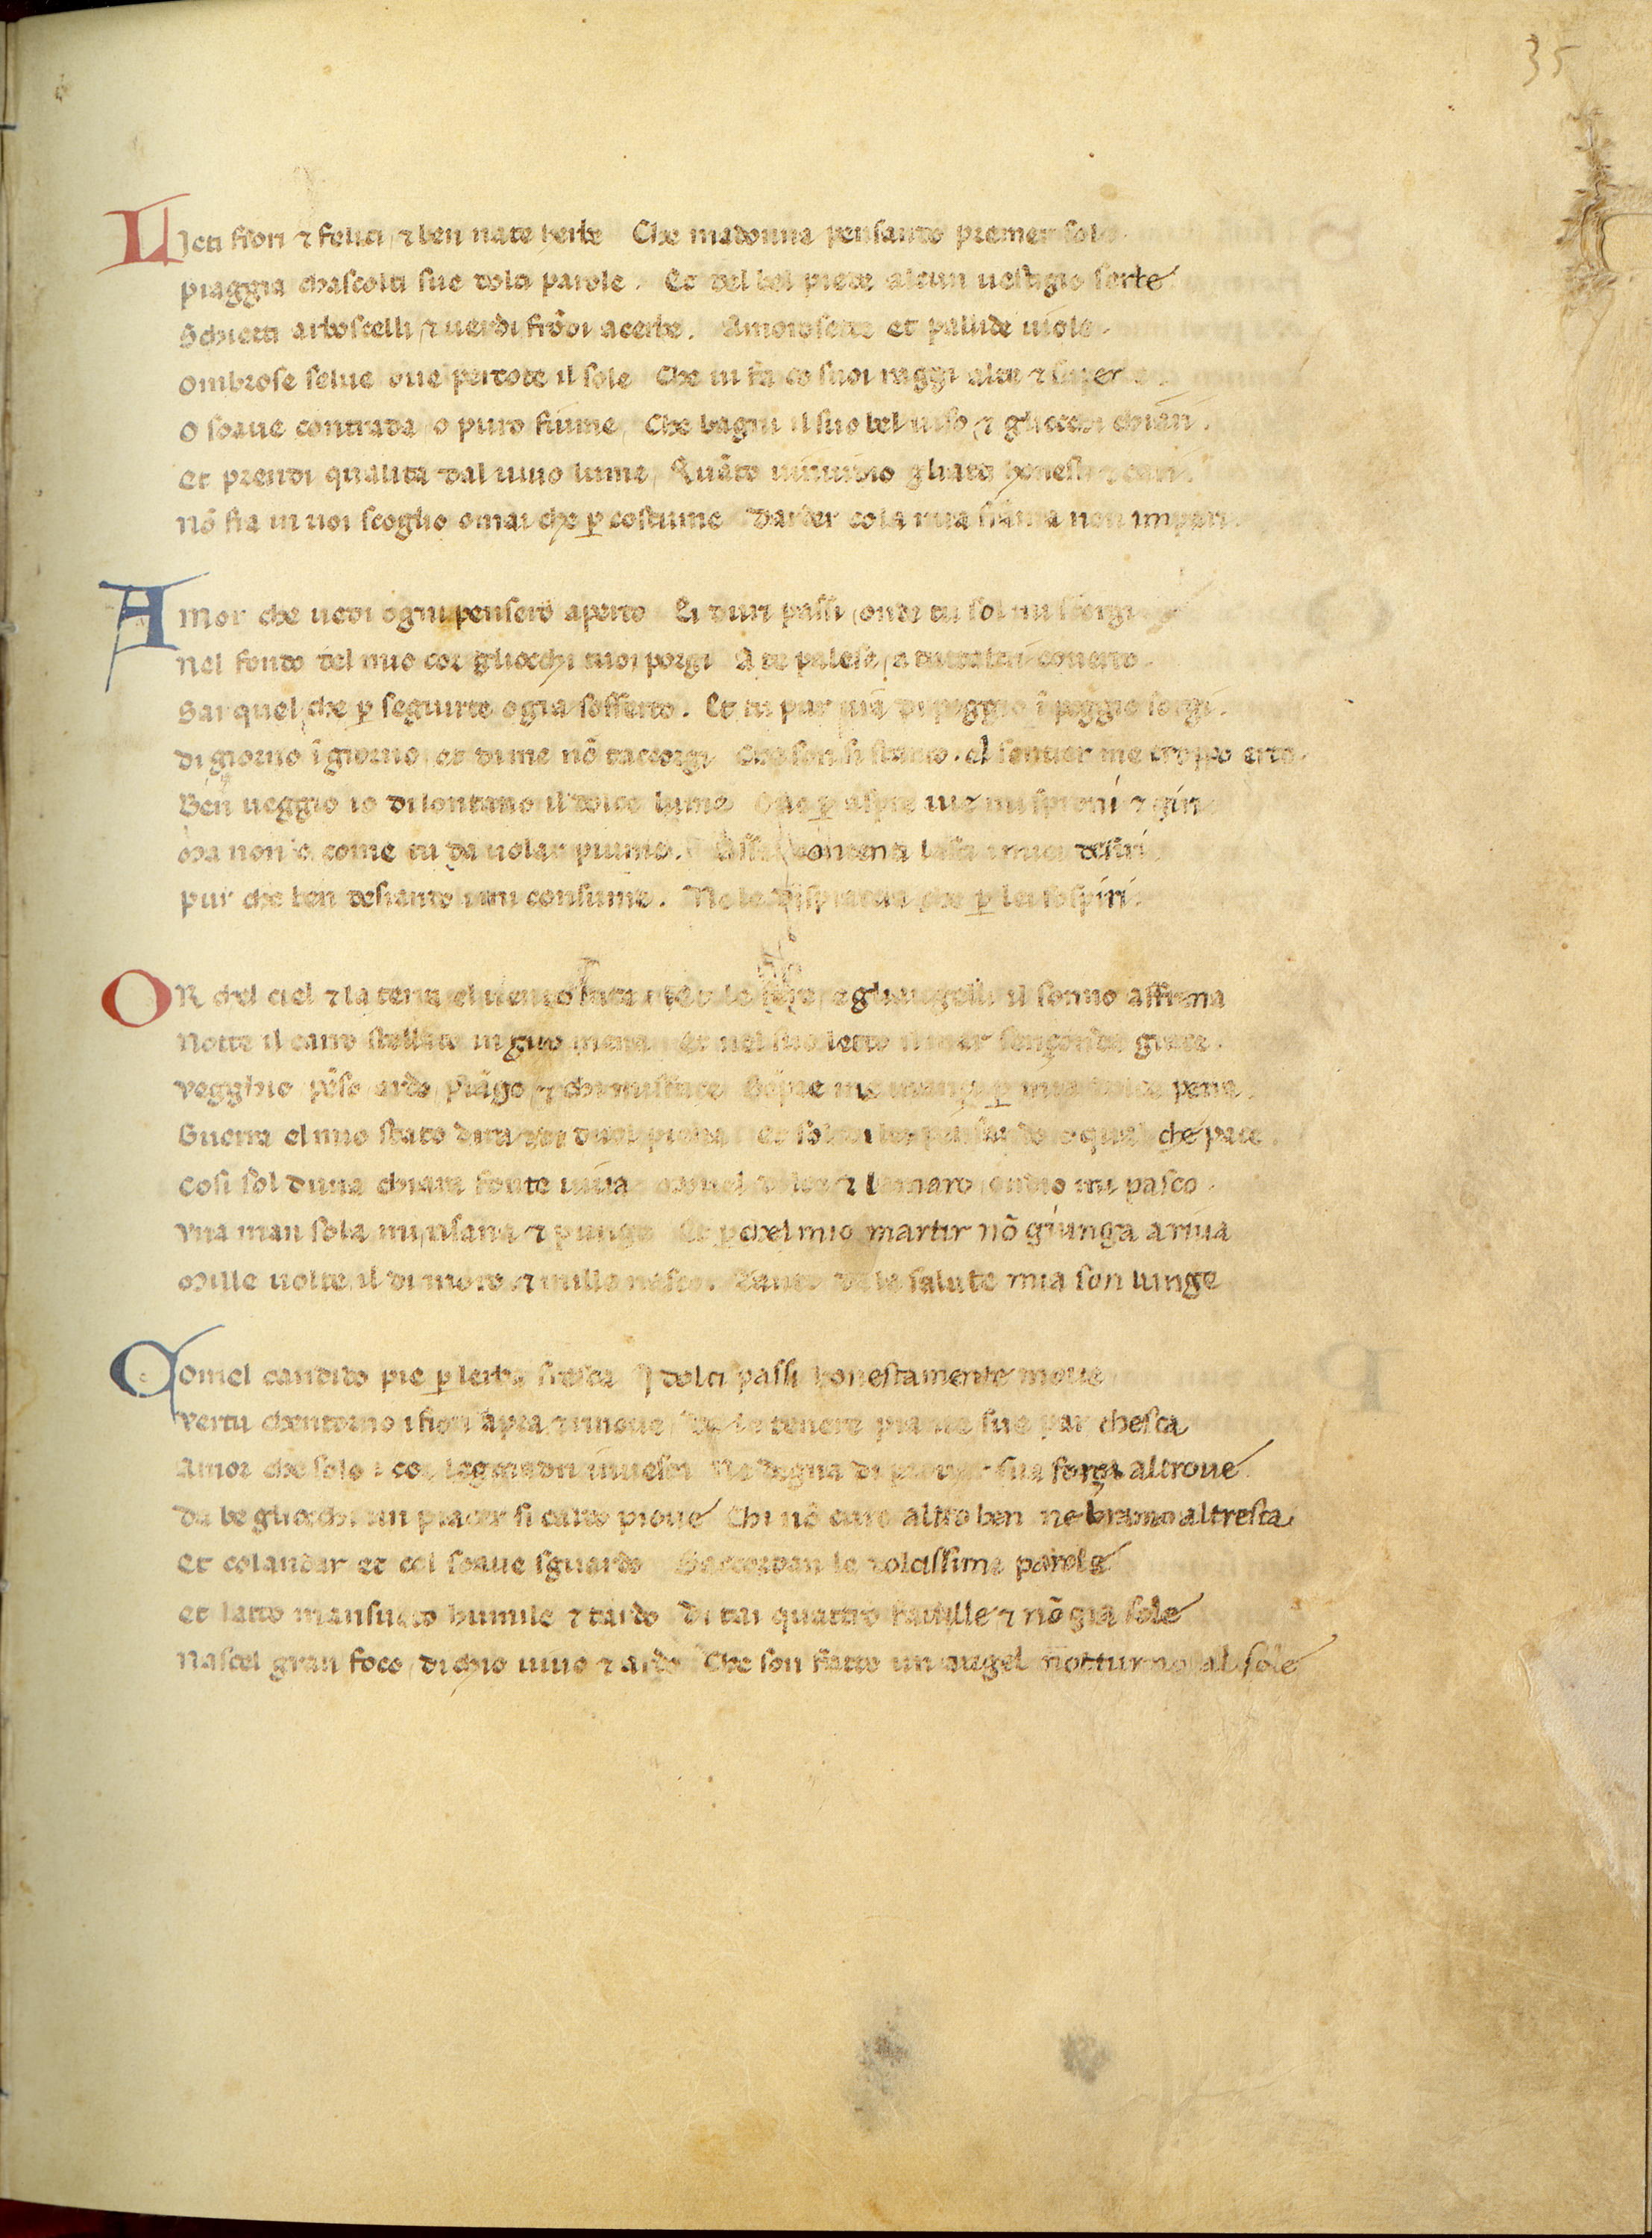 35
LIeti fiori ⁊ felici, ⁊ ben nate herbe Che madonna pensando premer sole.
piaggia chascolti sue dolci parole. Et del bel piede alcun uestigio serbe
Schietti arboscelli, ⁊ uerdi frōdi acerbe. Amorosette et pallide uiole.
Ombrose selue oue percote il sole Che ui fa co suoi raggi alte ⁊ superbe.
O soaue contrada, o puro fiume, Che bagni il suo bel uiso, ⁊ gliocchi chiari.
Et prendi qualita dal uiuo lume, Quāto uinuidio gliatti honesti ⁊ cari.
Nō fia in uoi scoglio omai che p̲ costume Darder cola mia fiāma non impari.
AMor che uedi ogni pensero aperto Ei duri passi, onde tu sol mi scorgi
Nel fondo del mio cor gliocchi tuoi porgi A te palese, a tuttaltri couerto.
Sai quel che p̲ seguirte o gia sofferto. Et tu pur uia di poggio ī poggio sorgi.
di giorno ī giorno, et di me nō taccorgi Che son si stanco. el sentier me troppo erto.
Ben ueggio io di lontano il dolce lume Oue p̲ aspre uie mi sproni ⁊ giri
Ma non o come tu da uolar piume. Assai contenti lasci i miei desiri
pur che ben desiando i mi consume. Ne le dispiaccia che p̲ lei sospiri.
OR chel ciel ⁊ la terra el uento tace le fere, ⁊ gliaugelli il sonno affrena
Notte il carro stellato in giro mena Et nel suo letto il mar senzonda giace.
Vegghio pēso ardo, piāgo, ⁊ chi mi sface Sēpre me inanzi p̲ mia dolce pena.
Guerra el mio stato dira ⁊ di duol piena Et sol di lei pensando o qualche pace.
Cosi sol duna chiara fonte uiua Mouel dolce ⁊ lamaro ondio mi pasco.
Vna man sola mi risana ⁊ punge Et p̲ chel mio martir nō giunga a riua
Mille uolte il di moro, ⁊ mille nasco. Tanto da la salute mia son lunge
COmel candido pie p̲ lerba fresca I dolci passi honestamente moue
Vertu chentorno i fiori apra, ⁊ rinoue De le tenere piante sue par chesca
Amor che solo i cor leggiadri inuesca Ne degna di prouar sua forza altroue
da be gliocchi un piacer si caldo pioue Chi nō curo altro ben ne bramo altresca
Et colandar et col soaue sguardo Saccordan le dolcissime parole
et latto mansueto humile ⁊ tardo di tai quattro fauille, ⁊ nō gia sole
Nascel gran foco, di chio uiuo ⁊ ardo Che son fatto un augel notturno al sole